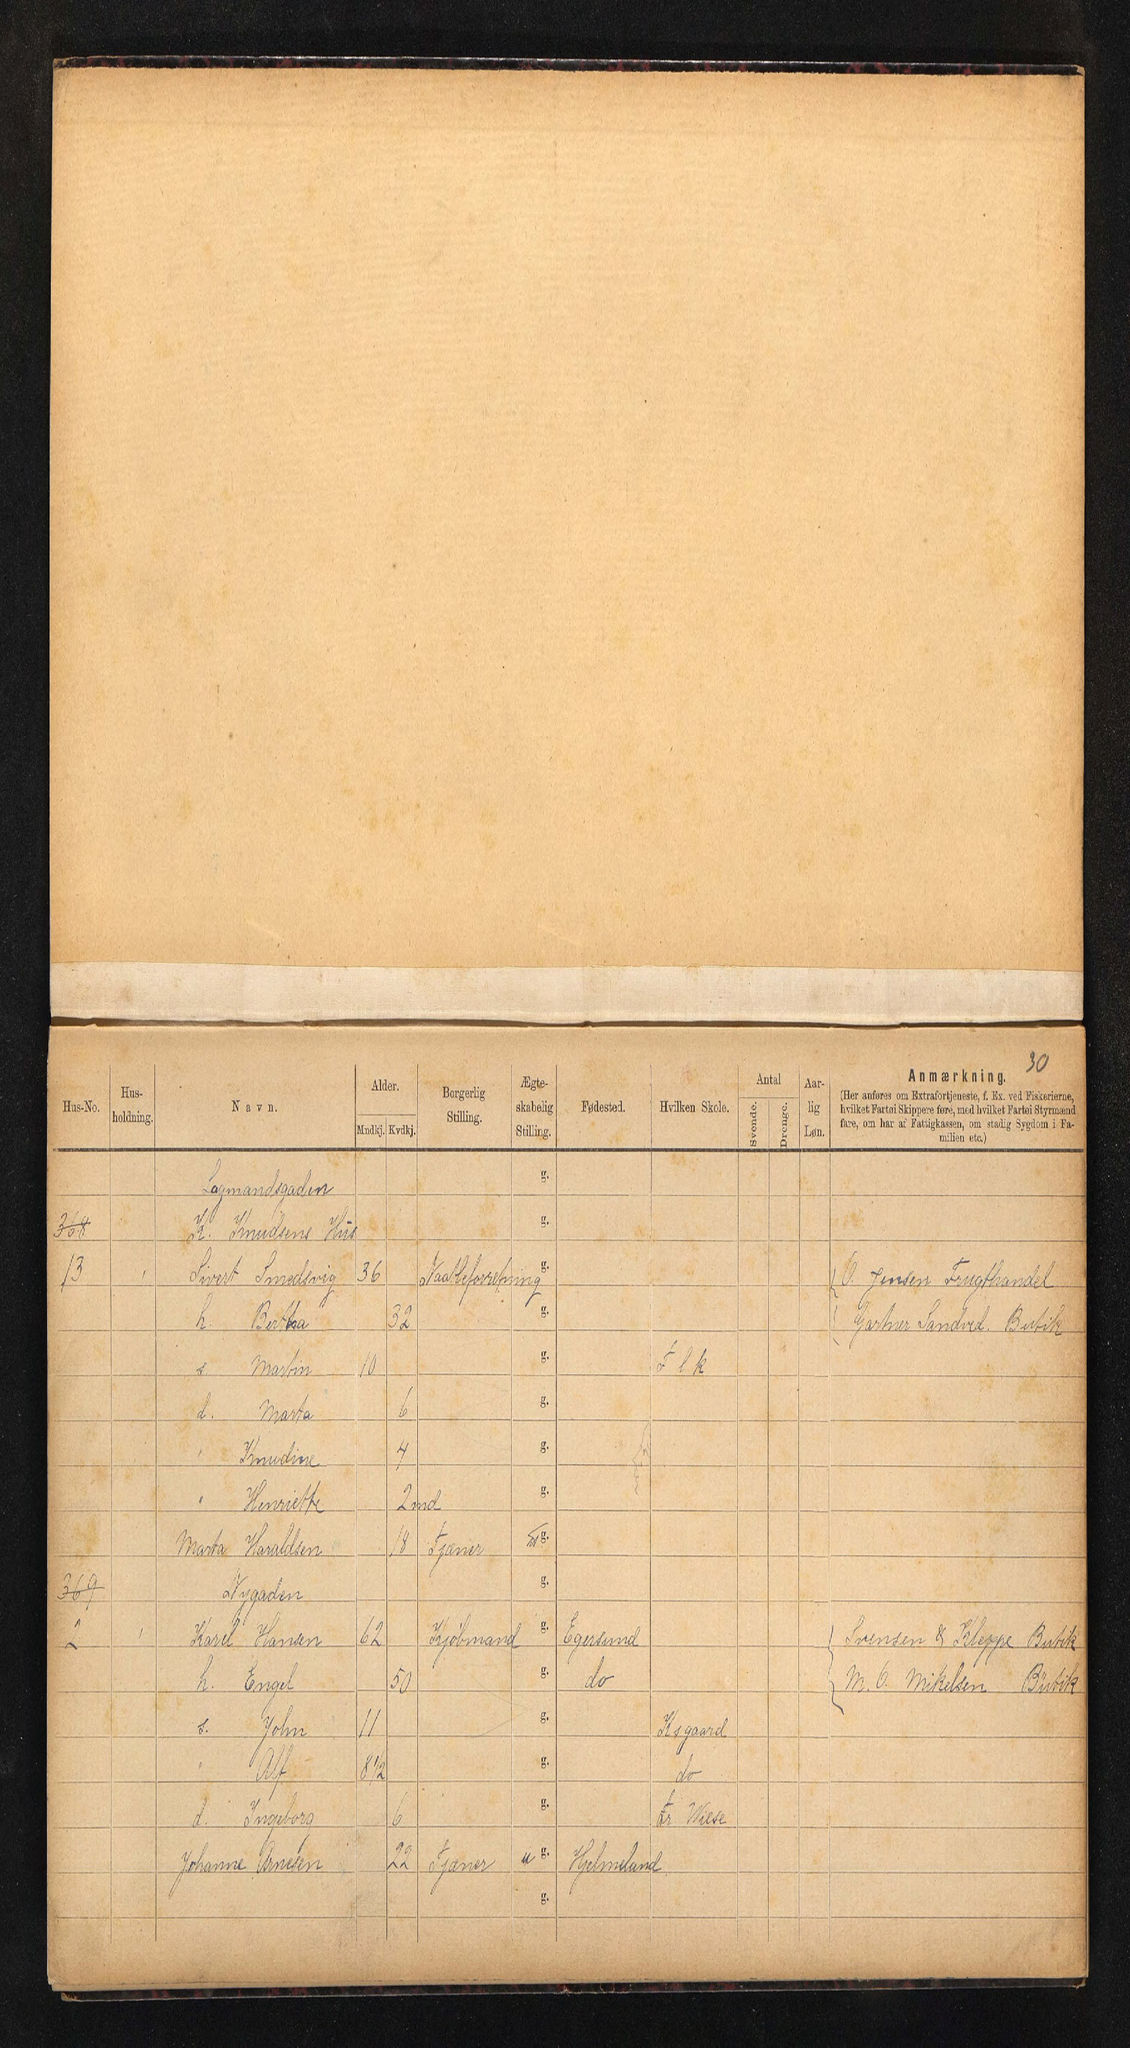 30
Hus-No. Hus-holdning. Navn. Alder. Mndkj. Kvdkj. Borgerlig Stilling. Ægte-skabelig Stilling. Fødested. Hvilken Skole. Antal Svende. Drenge. Aar-lig Løn. Anmærkning.
(Her anføres om Extrafortjeneste, f. Ex. ved Fiskerierne,
hvilket Fartøi Skippere føre, med hvilket Fartøi Styrmænd
fare, om har af Fattigkassen, om stadig Sygdom i Fa-
milien etc.)
Lagmandsgaden g.
368 K. Knudsens Hus g.
13 Sivert Smedsvig 36 g. O. Jensen Frugthandel
h. Bertha 32 g. Gartner Sandved. Butik
s Martin 10 g. F l k
d. Marta 6 g.
" Knudine 4 g.
" Henriette 2 md g.
Marta Haraldsen 18 Tjener g.
369 Nygaden g.
2 Karel Hansen 62 Kjøbmand g. Egersund Svensen & Kleppe Butik
h. Engel 50 g. do M. O. Mikelsen Butik
s. John 11 g. Ksgaard
" Alf 8 1/2 g. do
d. Ingeborg 6 g. Fr Wiese
Johanne Arnesen 22 Tjener u g. Hjelmeland
g.